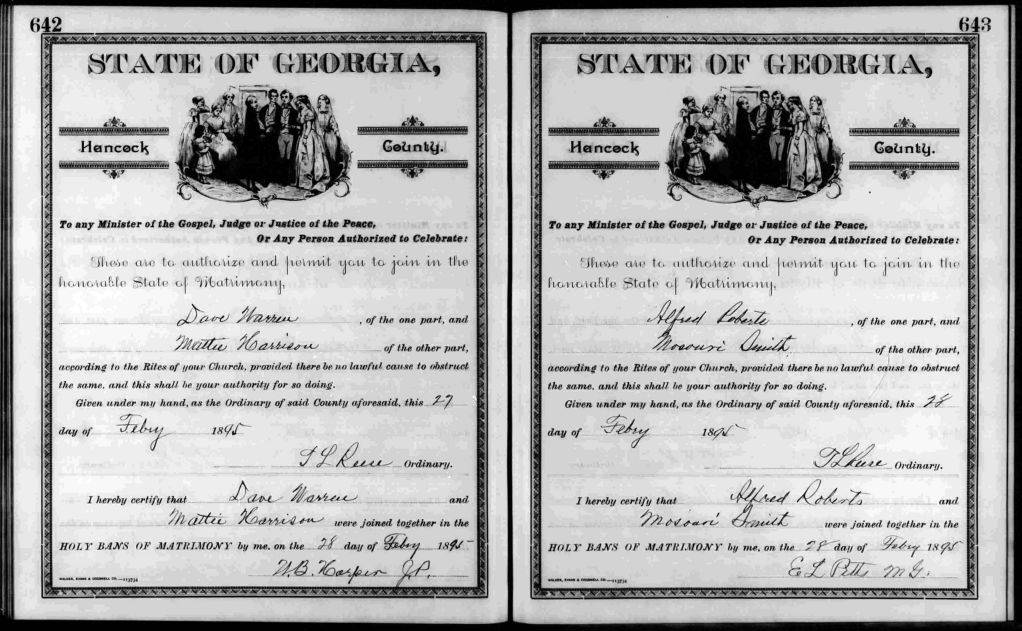 642
STATE OF GEORGIA,
Hancock County.
To any Minister of the Gospel, Judge or Justice of the Peace,
Or Any Person Authorized to Celebrate:
These are to authorize and permit you to join in the
honorable State of Matrimony,
Dave Warren, of the one part, and
Mattie Harrison of the other part,
according to the Rites of your Church, provided there be no lawful cause to obstruct
the same, and this shall be your authority for so doing.
Given under my hand, as the Ordinary of said County aforesaid, this 27
day of Febry 1895
T L Reese Ordinary.
I hereby certify that Dave Warren and
Mattie Harrison were joined together in the
HOLY BANS OF MATRIMONY by me, on the 28 day of Febry 1895
W.B. Harper J.P.
WALKER, EVANS & COGSWELL CO.—113734
643
STATE OF GEORGIA,
Hancock County.
To any Minister of the Gospel, Judge or Justice of the Peace,
Or Any Person Authorized to Celebrate:
These are to authorize and permit you to join in the
honorable State of Matrimony,
Alfred Roberts, of the one part, and
Mosouri Smith of the other part,
according to the Rites of your Church, provided there be no lawful cause to obstruct
the same, and this shall be your authority for so doing.
Given under my hand, as the Ordinary of said County aforesaid, this 28
day of Febry 1895
T L Reese Ordinary.
I hereby certify that Alfred Roberts and
Mosouri Smith were joined together in the
HOLY BANS OF MATRIMONY by me, on the 28 day of Febry 1895
E L Pitts M.G.
WALKER, EVANS & COGSWELL CO.—113734